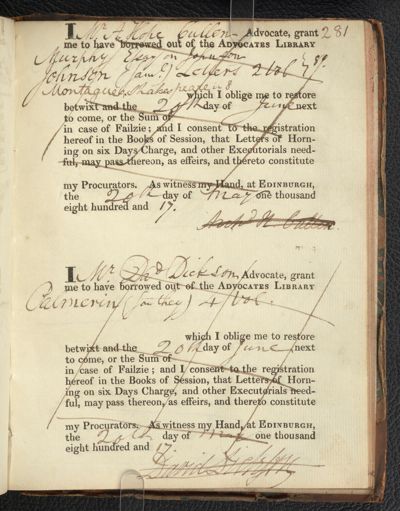 281
I Mr A Hope Cullen Advocate, grant
me to have borrowed out of the ADVOCATES LIBRARY
Murphy Essay on Johnson
Johnson (Sam:) Letters 2 vol
Montague Shakespeare 8
which I oblige me to restore
betwixt and the 20th day of June next
to come, or the Sum of
in case of Failzie; and I consent to the registration
hereof in the Books of Session, that Letters of Horn-
ing on six Days Charge, and other Executorials need-
ful, may pass thereon, as effeirs, and thereto constitute
my Procurators. As witness my Hand, at EDINBURGH,
the 20th day of May one thousand
eight hundred and 17.
Archd H. Cullen
I Mr Dd Dickson, Advocate, grant
me to have borrowed out of the ADVOCATES LIBRARY
Palmerin (Southey) 4 vol.
which I oblige me to restore
betwixt and the 20th day of June next
to come, or the Sum of
in case of Failzie; and I consent to the registration
hereof in the Books of Session, that Letters of Horn-
ing on six Days Charge, and other Executorials need-
ful, may pass thereon, as effeirs, and thereto constitute
my Procurators. As witness my Hand, at EDINBURGH,
the 20th day of May one thousand
eight hundred and 17
David Dickson